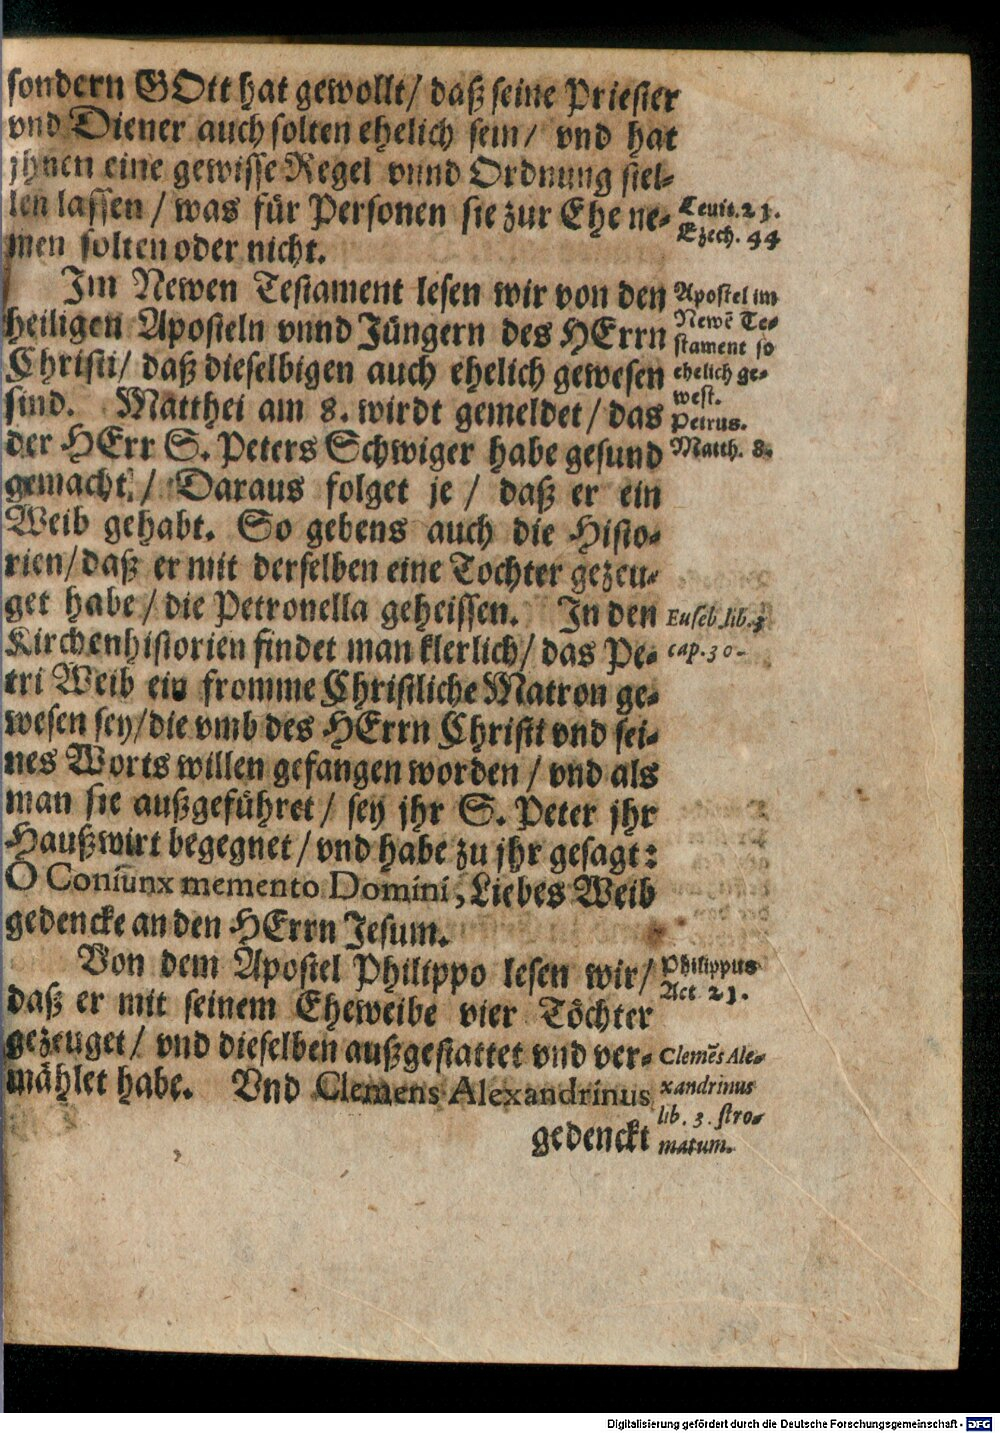 sondern GOtt hat gewollt/ daß seine Priester
vnd Diener auch solten ehelich sein/ vnd hat
jhnen eine gewisse Regel vnnd Ordnung stel-
len lassen / was für Personen sie zur Ehe ne-
men solten oder nicht.
Levit. 21.
Ezech. 44
Im Newen Testament lesen wir von den
heiligen Aposteln vnnd Jüngern des HErrn
Christi/ daß dieselbigen auch ehelich gewesen
sind. Matthei am 8. wirdt gemeldet / das
der HErr S. Peters Schwiger habe gesund
gemacht / Daraus folget je / daß er ein
Weib gehabt. So gebens auch die Histo-
rien/ daß er mit derselben eine Tochter gezeu-
get habe / die Petronella geheissen. In den
Kirchenhistorien findet man klerlich/ das Pe-
tri Weib ein fromme Christliche Matron ge-
wesen sey/ die vmb des HErrn Christi vnd sei-
nes Worts willen gefangen worden / vnd als
man sie außgeführet / sey jhr S. Peter jhr
Haußwirt begegnet / vnd habe zu jhr gesagt:
O Coniunx memento Domini, Liebes Weib
gedencke an den HErrn Jesum.
Apostel im
Newē Te-
stament so
ehelich ge-
west.
Petrus.
Matth. 8.
Euseb. lib. 3
cap. 30.
Von dem Apostel Philippo lesen wir/
daß er mit seinem Eheweibe vier Töchter
gezeuget / vnd dieselben außgestattet vnd ver-
mählet habe. Vnd Clemens Alexandrinus
gedenckt
Philippus
Act 21.
Clemēs Ale-
xandrinus
lib. 3. stro-
matum.
Digitalisierung gefördert durch die Deutsche Forschungsgemeinschaft - DFG